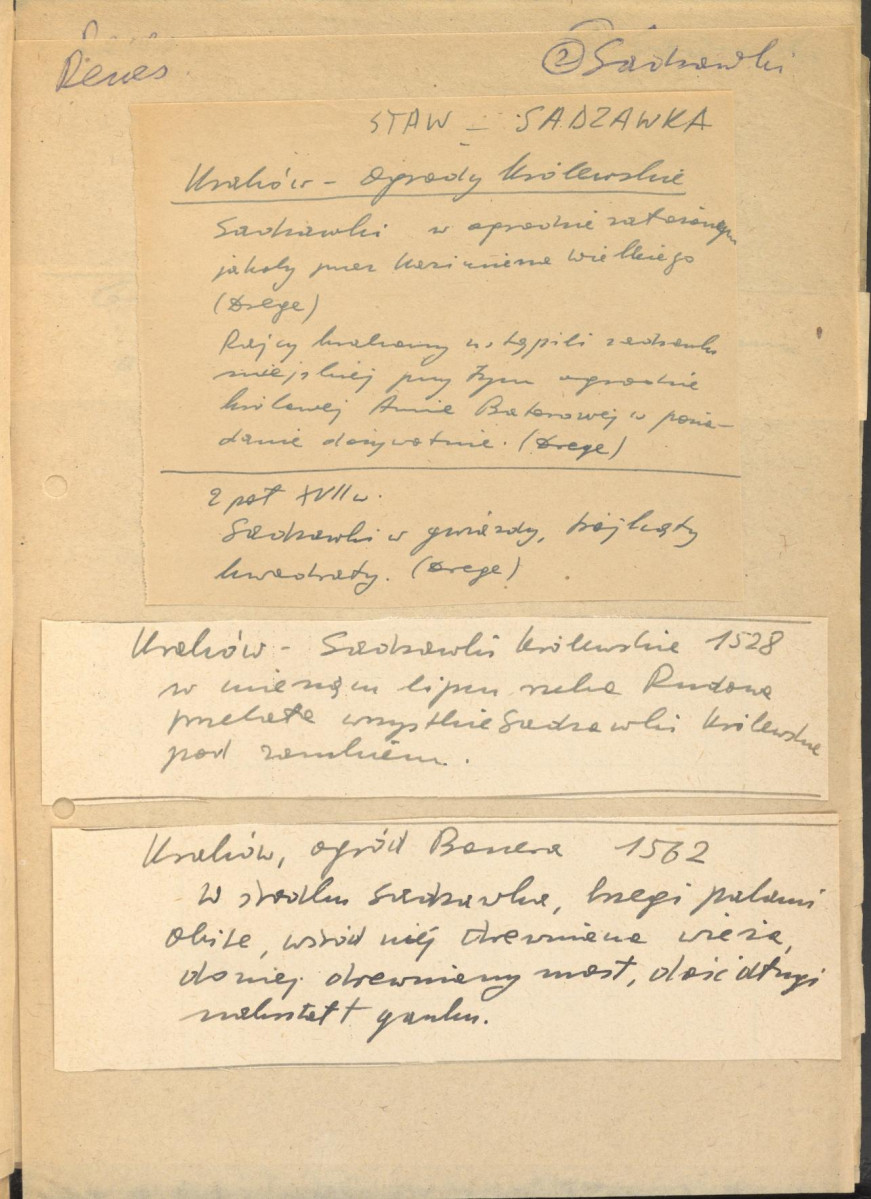 Renes
② Sadzawki
STAW – SADZAWKA
Kraków – Ogrody Królewskie
Sadzawki w ogrodzie założonym
jakoby przez Kazimierza Wielkiego
(Drege)
Rajcy krakowscy ustąpili sadzawki
miejskiej przy tym ogrodzie
królowej Annie Batorowej w posia-
danie dożywotnie. (Drege)
2 poł XVII w.
Sadzawki w gwiazdy, trójkąty
kwadraty. (Drege)
Kraków – Sadzawki Królewskie 1528
w miesiącu lipcu rzeka Rudawa
przelała wszystkie Sadzawki Królewskie
pod zamkiem.
Kraków, ogród Bonera 1562
W środku Sadzawka, brzegi palami
obite, wśród niej drewniana wieża,
do niej drewniany most, dość długi
nakształt ganku.